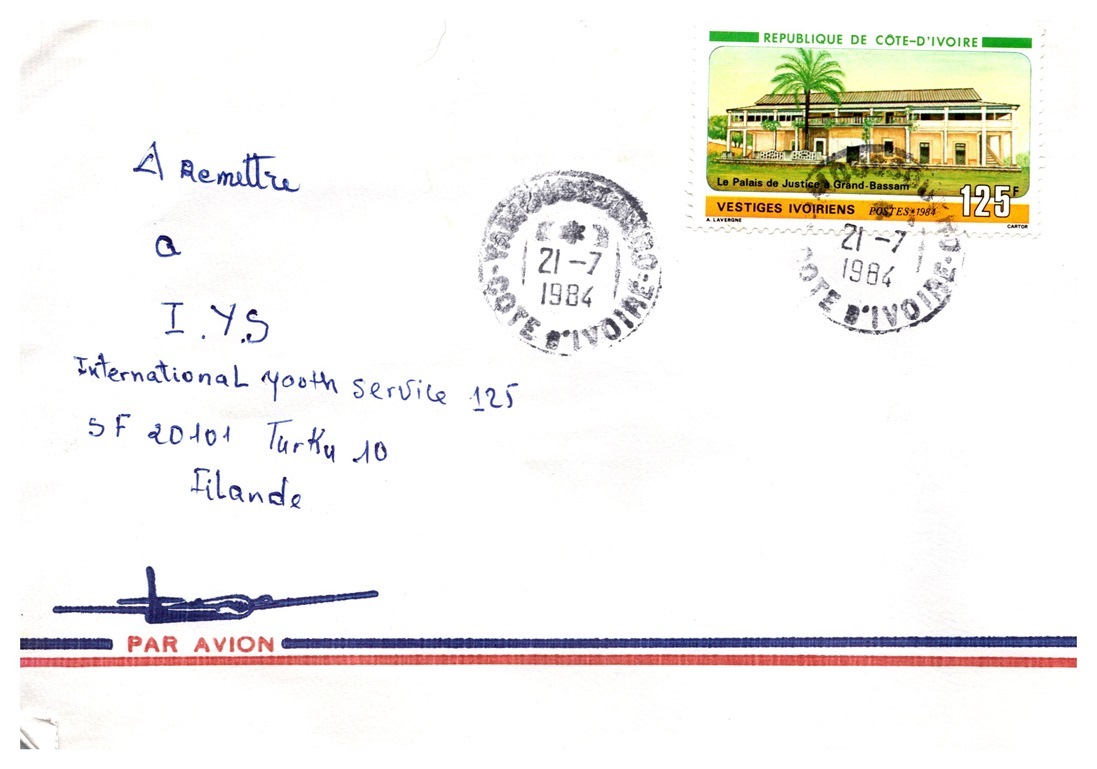 REPUBLIQUE DE CÔTE-D'IVOIRE
Le Palais de Justice à Grand-Bassam
125F
VESTIGES IVOIRIENS POSTES 1984
A. LAVERGNE
CARTOR
21 -7
1984
COTE D'IVOIRE
21 -7
1984
COTE D'IVOIRE
A Remettre
a
I.Y.S
International Youth Service 125
SF 20101 Turku 10
Filande
PAR AVION